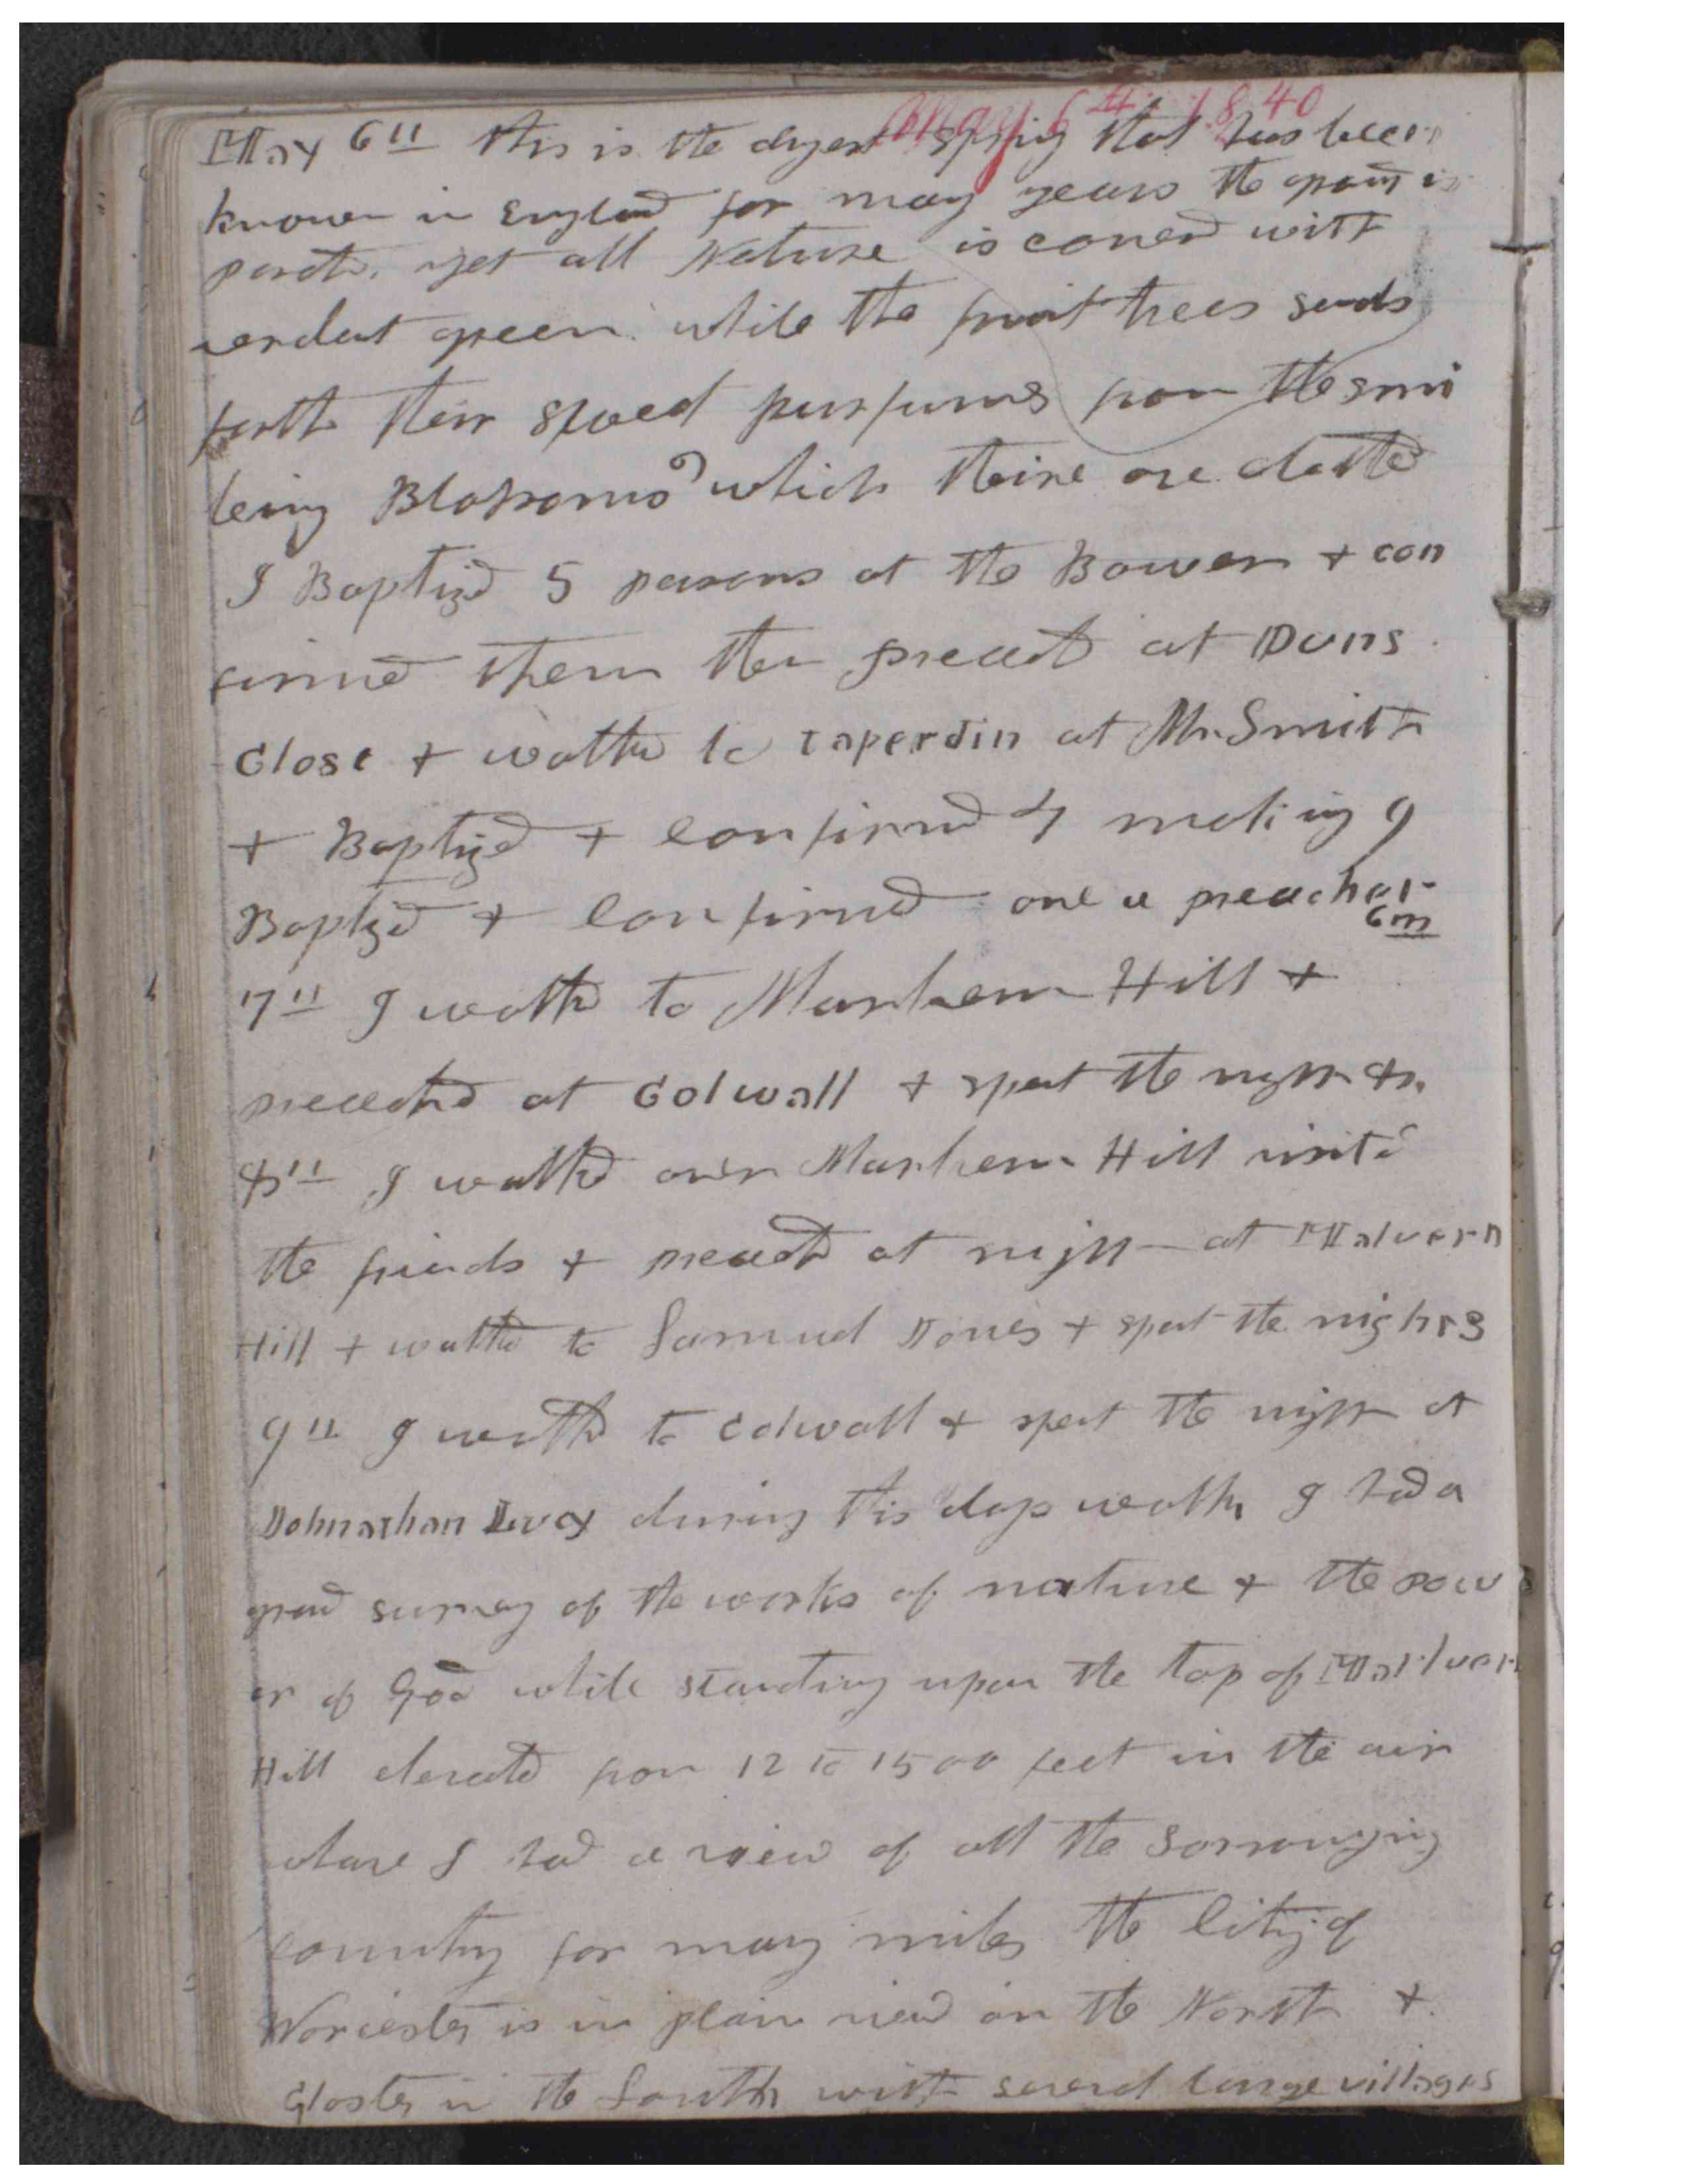 May 6th 1840
May 6th this is the dryest spring that has been
known in England for many years the ground is
parched. yet all Nature is covered with
verdent green. while the fruit trees sends
forth their sweed purfumes from the smi
leing Blossoms which theire are clothed
I Baptized 5 persons at the Bower & con
firmed them then preached at Duns
Close & walked to Taperdin at Mr. Smith
& Baptized & Confirmed 4 making 9
Baptized & Confirmed one a preacher
6m
7th I walked to Marlvern Hill &
preached at Colwall & spent the night 4m.
8th I walked over Marlvern Hill visited
the friends & preached at night at Malvern
Hill & walked to Samuel Jones & spent the night 8
9th I walked to Colwall & spent the night at
Johnathan Lucy during this days walk I had a
grand survey of the works of nature & the pow
er of God while standing upon the top of Marlvern
Hill elevated from 12 to 1500 feet in the air
whare I had a view of all the Sorrounging
country for many miles the City of
Worcester is in plain view on the North &
Gloster in the South with several large villages